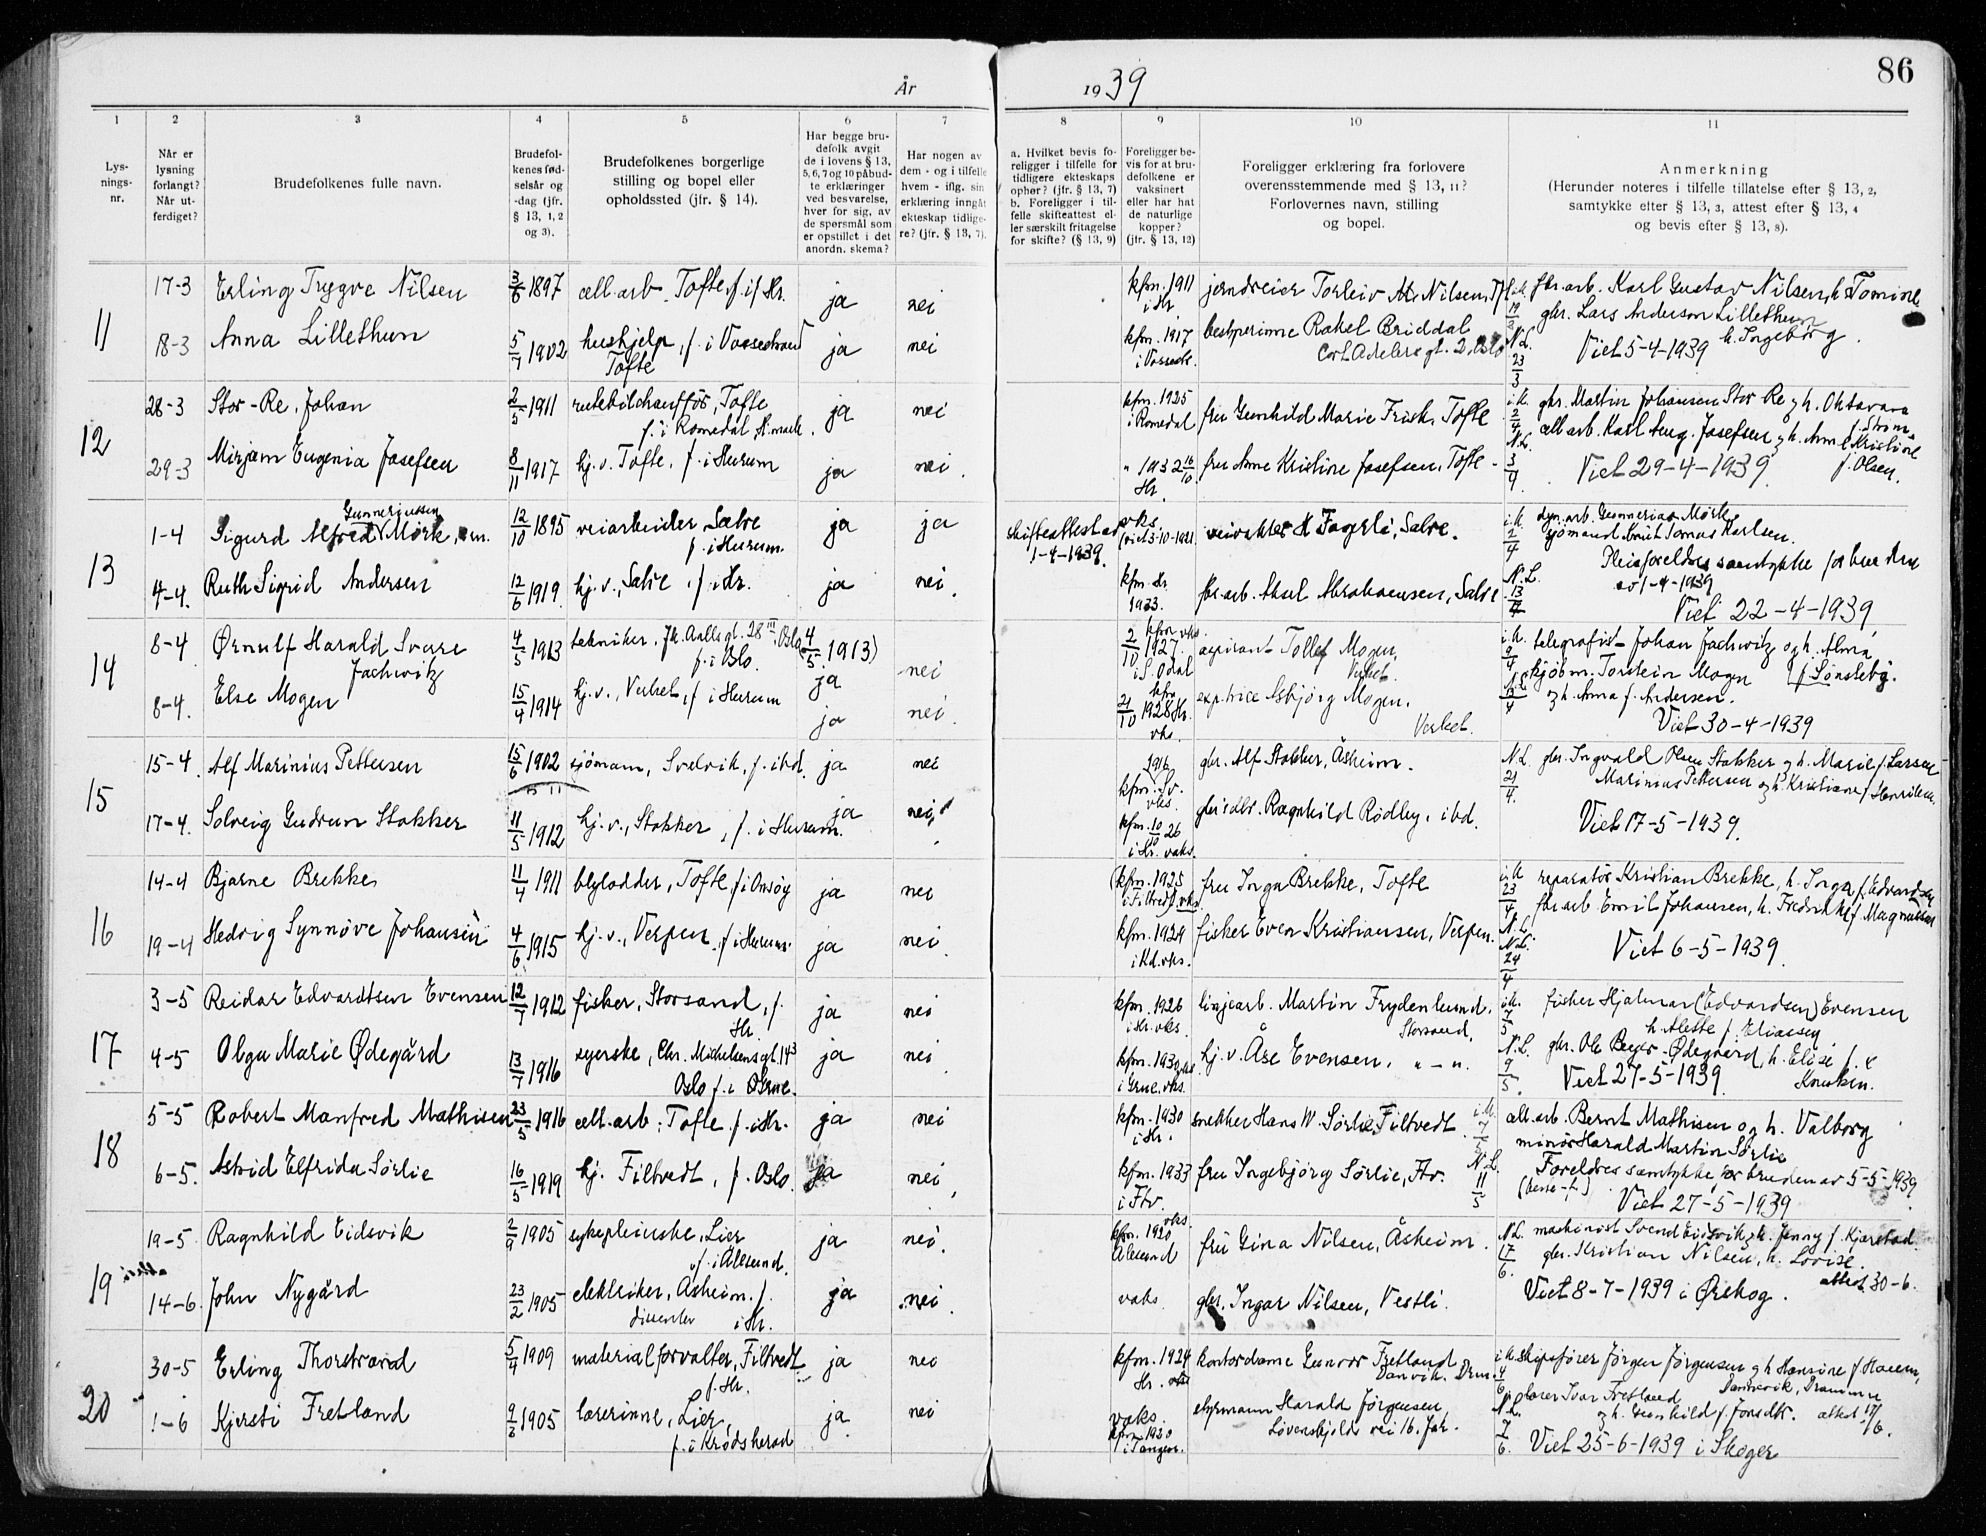 År 1939
86
1 2 3 4 5 6 7 8 9 10 11
Lys-
nings-
nr.
Når er
lysning
forlangt?
Når ut-
ferdiget?
Brudefolkenes fulle navn.
Brudefol-
kenes fød-
selsår og
-dag (jfr.
§ 13, 1, 2
og 3).
Brudefolkenes borgerlige
stilling og bopel eller
opholdssted (jfr. § 14).
Har begge bru-
defolk avgit
de i lovens § 13,
5, 6, 7 og 10 påbud-
te erklæringer
ved besvarelse,
hver for sig, av
de spørsmål som
er opstillet i det
anordn. skema?
Har nogen av
dem - og i tilfelle
hvem - iflg. sin
erklæring inngåt
ekteskap tidlige-
re? (jfr. § 13, 7).
a. Hvilket bevis fo-
religger i tilfelle for
tidligere ekteskaps
ophør? (jfr. § 13, 7)
b. Foreligger i til-
felle skifteattest el-
ler særskilt fritagelse
for skifte? (§ 13, 9)
Foreligger be-
vis for at bru-
defolkene er
vaksinert
eller har hat
de naturlige
kopper?
(jfr. § 13, 12)
Foreligger erklæring fra forlovere
overensstemmende med § 13, 11?
Forlovernes navn, stilling
og bopel.
Anmerkning
(Herunder noteres i tilfelle tillatelse efter § 13, 2,
samtykke efter § 13, 3, attest efter § 13, 4
og bevis efter § 13, 8).
11
17-3 Erling Trygve Nilsen 3/6 1897 cell.arb. Tofte, f. i Hr. ja nei kfm. 1911 i Hr jerndreier Torleiv Nilsen, fbr.arb. Karl Gustav Nilsen, h. Tomine
18-3 Anna Lillethun 5/7 1902 hushjelp, f. i Vossestrand ja nei kfm. 1917 bestyrerinne Rakel Briddal gbr. Lars Anderson Lillethun
Tofte Cort Adelers gt. 2, Oslo h. Ingeborg.
Viet 5-4-1939
12
28-3 Stor-Re, Johan 2/5 1911 rutebilchauffør, Tofte ja nei kfm. 1925 i Romedal fru Gunhild Marie Frisk, Tofte gbr. Martin Johansen Stor Re og h. Oktavara
f. i Romedal, H.mark. f. Strøm.
29-3 Mirjam Eugenia Josefsen 8/11 1917 hj.v. Tofte, f. i Hurum ja nei " 1932 16/10 Hr. fru Anne Kristine Josefsen, Tofte cell.arb. Karl Aug. Josefsen og h. Anne Kristine
f. Olsen.
Viet 29-4-1939
13
1-4 Sigurd Alfred Gunneriussen Mørk, em. 12/10 1895 veiarbeider, Sætre ja ja skifteattest av 1-4-1939. vks. (viet 3-10-1921 veivokter K. Fagerli, Sætre. Gunnerius Mørk
f. i Hurum. sjømand Knut Tomas Karlsen.
4-4. Ruth Sigrid Andersen 12/6 1919 hj.v., Sætre, f. i Hr. ja nei. kfm. Hr 1933. fbr.arb. Aksel Abrahamsen, Sætre Pleieforeldres samtykke for
av 1-4-1939
Viet 22-4-1939
14
8-4 Ørnulf Harald Svare 4/5 1913 tekniker, Jk. Aallsgt. 28 III, Oslo (4/5 1913) ja nei 2/10 kfm vks. 1927 i S. Odal aspirant Tollef Mogen, Verket. telegrafist Johan Jachwitz og h. Alma
Jachwitz f. i Oslo. f. Sønsteby.
8-4. Else Mogen 15/4 1914 hj.v., Verket, f. i Hurum ja nei. 21/10 kfm 1928 Hr. vks. exp.trice Asbjørg Mogen, Verket. kjøbm. Torstein Mogen
og h. Anna f. Andersen.
Viet 30-4-1939
15
15-4. Alf Marinius Pettersen 15/6 1902 sjømann, Svelvik, f. ibd. ja nei 1916 kfm. Sv. vks. gbr. Alf Stokker, Åsheim. gbr. Ingvald Olsen Stokker og h. Marie f. Larsen
17-4. Solveig Gudrun Stokker 11/5 1912 hj.v., Stokker, f. i Hurum. ja nei kfm. 10/10 26 i Hr. vaks. Ragnhild Rødby, ibd. Marinius Pettersen og h. Kristiane f. Henriksen.
Viet 17-5-1939.
16
14-4 Bjarne Brekke 11/7 1911 blylodder, Tofte, f. i Onsøy ja nei (kfm. 1925 i Filtvedt) vks. fru Inga Brekke, Tofte reparatør Kristian Brekke, h. Inga f. Edvardsen
19-4 Hedvig Synnøve Johansen 4/6 1915 hj.v., Verpen, f. i Hurum. ja nei kfm. 1929 i Kd. vks. fisker Even Kristiansen, Verpen. fbr.arb. Emil Johansen, h. Fredrikke f. Magnussen
Viet 6-5-1939.
17
3-5 Reidar Edvardtsen Evensen 12/7 1912 fisker, Storsand, f. Hr. ja nei kfm. 1926 i Hr. vks. linjearb. Martin Frydenlund, Storsand, fisker Hjalmar (Edvardsen) Evensen
h. Alette f. Eliassen
4-5 Olga Marie Ødegård 13/7 1916 syerske, Chr. Michelsensgt. 143 Oslo f. i Grue. ja nei kfm. 1930 i Grue. vks. hj.v. Åse Evensen, " - ". gbr. Ole Beyer-Ødegaard, h. Elise f.
Knukén.
Viet 27-5-1939.
18
5-5 Robert Manfred Mathisen 23/5 1916 cell.arb. Tofte, f. i Hr. ja nei kfm. 1930 i Hr. snekker Hans W. Sørlie, Filtvedt cell.arb. Bernt Mathisen og h. Valborg
minør Harald Martin Sørlie
6-5. Astrid Elfrida Sørlie 16/5 1919 hj. Filtvedt, f. Oslo. ja nei kfm. 1933 i Ftv. fru Ingebjørg Sørlie, Ftv. Foreldres samtykke for bruden av 5-5-1939
Viet 27-5-1939
19
19-5 Ragnhild Eidsvik 2/9 1905 sykepleierske, Lier f. i Ålesund. ja nei. kfm. 1920 vks. Ålesund fru Gina Nilsen, Åsheim. maskinist Svend Eidsvik, h. Jenny f. Kjærstad.
14-6. John Nygård 23/2 1905 elektriker, Åsheim. f. i Hr. dissenter ja nei. vaks. gbr. Ingar Nilsen, Vestli. gbr. Kristian Nilsen, h. Lovise.
attest 30-6.
Viet 8-7-1939 i Ørskog.
20
30-5 Erling Thorstrand 5/4 1909 materialforvalter, Filtvedt f. Hr. ja nei kfm. 1924 Hr. vks kontordame Gunvor Fretland Danvik, Drm. skipsfører Jørgen Jørgensen og h. Hansine f.
Danvik, Drammen
1-6 Kjersti Fretland 9/3 1905 lærerinne, Lier, f. i Krødsherad ja nei vaks. kfm. 1920 i Tangen. styrmann Harald Jørgensen, Løvenskjolds vei 16. Jar. lærer Ivar Fretland
og h. Gunhild f. Jonsdtr. attest 17/6.
Viet 25-6-1939 i Skoger